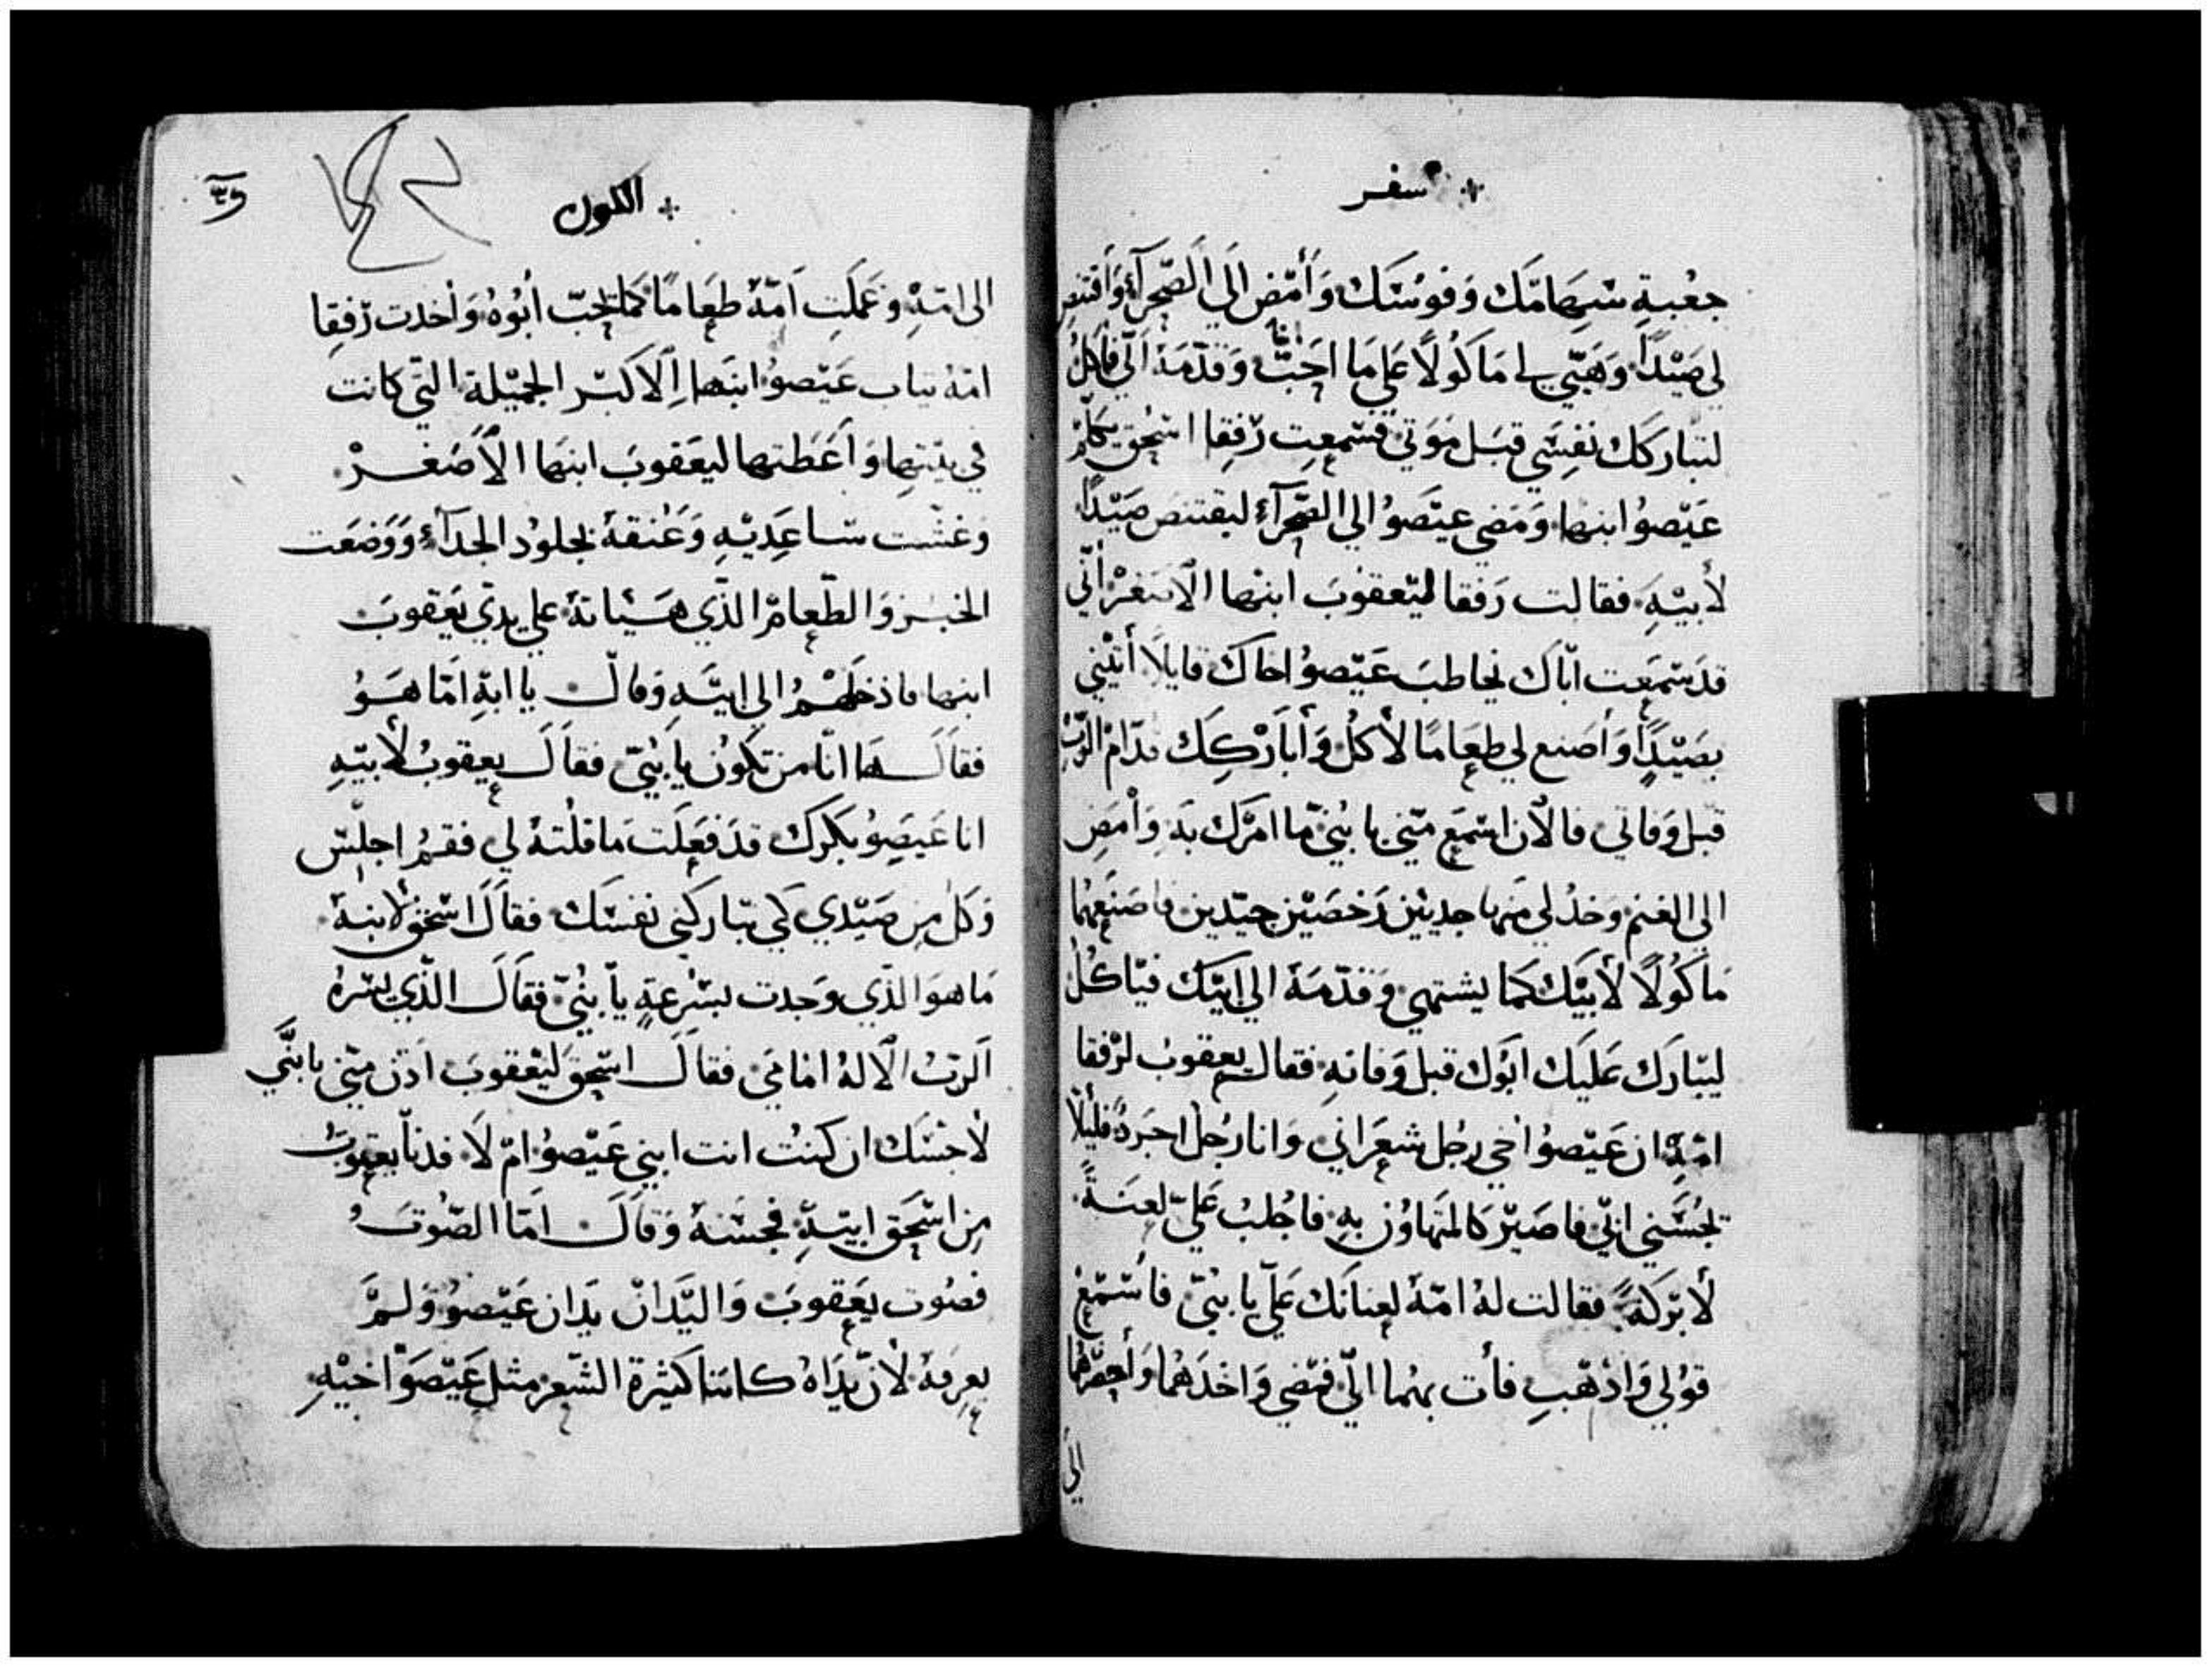 سفر
جعْبة سهَامَك وَقوسَك وَأمْض الَي الَصّحرآءِ وَأقتنص
لي صَيْدًا وَهَيّي لي مَاكُولًا عَلي مَا احَبّ وَقدّمَهُ الَيّ فآكلُ
لتباركك نفسَي قبَل موَتي فسَمعِت رّفقا اسَحٰق يكلّم
عَيْصوُ ابنهَا وَمَضي عيصَوُ الي الصّحرآءِ ليقتنص صَيْدًا
لأبيْهِ فقالت رَفقا ليَعقوُبَ ابنْها الأصَغرْ أنّي
قدَ سَمَعت ابّاك يخاطبَ عَيْصوُ اخاكَ قايلًا أتيْني
بصَيْدًٍا وَأصَنع لي طعَامًا لأكلُ وَأبَارْكك قدّام الرّبْ
قبل وَفاتي فالأن اسَمَع مَني يا بُنيّ ما امرَك بهَ وَأمْضِ
الي الغنم وَخدُ لي منها جديَيْن رَخصَيْن جيّدين فاصَنعَهُما
مَاكُولًا لأبيْك كما يشتهي وَقدّمَهَ الي ابيَك فيَاكُلْ
ليبَارَك عَليَك ابوُك قبل وَفاتهِ فقال يعقوبُ لرْفقا
امّهِ ان عَيْصوُ اخي رجُل شعَراني وَانا رجُل اجَردُ فليلّا
تجُسَني ابّي فاصَيْر كالمتهاوُن بهِ فاجُلبُ عَليّ لعنَةً
لأ برَكةً فقالت لهُ امّهَ لعناتك عَليّ يا بُنيّ فاسْمَعْ
قوُلي وَاذْهَبِ فأت بهما اليّ فمَضي وَاخذهُما وَأحضَرهُما
الي
الكون
٣٦
الي امّهِ وَعَملَتِ امّهُ طعَامًا كما يحبّ أبُوهُ وَأخدت رّفقِا
امّهُ تياب عَيْصوُ ابنَها الأكبَر الجميْلة التي كانت
في بيتها وَاعَطتها ليعَقوبَ ابنهَا الأصَغرْ
وَغشّت سَاعِديْهِ وَعُنقهُ بجلوُد الجدآءِ وَوَضعَت
الخبَز وَالطّعامْ الذّي هَيّاتهُ علي يديّ يعَقوبَ
ابنها فادخلهْمُ الي ابيَهِ وَقالَ يا ابهِ امّا هَوُ
فقالَ هَا انّا من تكوُن يا بُنيّ فقالَ يعقوبُ لأبيَهِ
انا عَيصَوُ بكرَك قدَ فعَلَت مَا قلُتهُ لي فقمُ اجلسّ
وَكلَ مِن صَيْدي كي تبَاركني نفسَك فقالَ اسَحٰق لأبنهُ
مَا هوَ الذّي وَجدت بسَرْعةٍ يا بُنيّ فقالَ الذّي يسَرهُ
الَرّبُ الألهُ امَامي فقالَ اسَحٰق ليْعقوبَ ادَن منّي يا بُنّي
لأجسَك ان كنتُ انت ابني عَيْصوُ امْ لَا فدنا يعقوبُ
مِن اسَحٰق ابيَهِ فجسَهُ وَقالَ امَا الصّوتُ
فصُوت يعَقوبَ وَاليَدانْ يَدان عَيْصوُ وَلمَ
يعرِفهُ لأنّ يدَاهُ كانتا كثيَرة الشّعر مثل عَيْصَوّ اخيْهِ